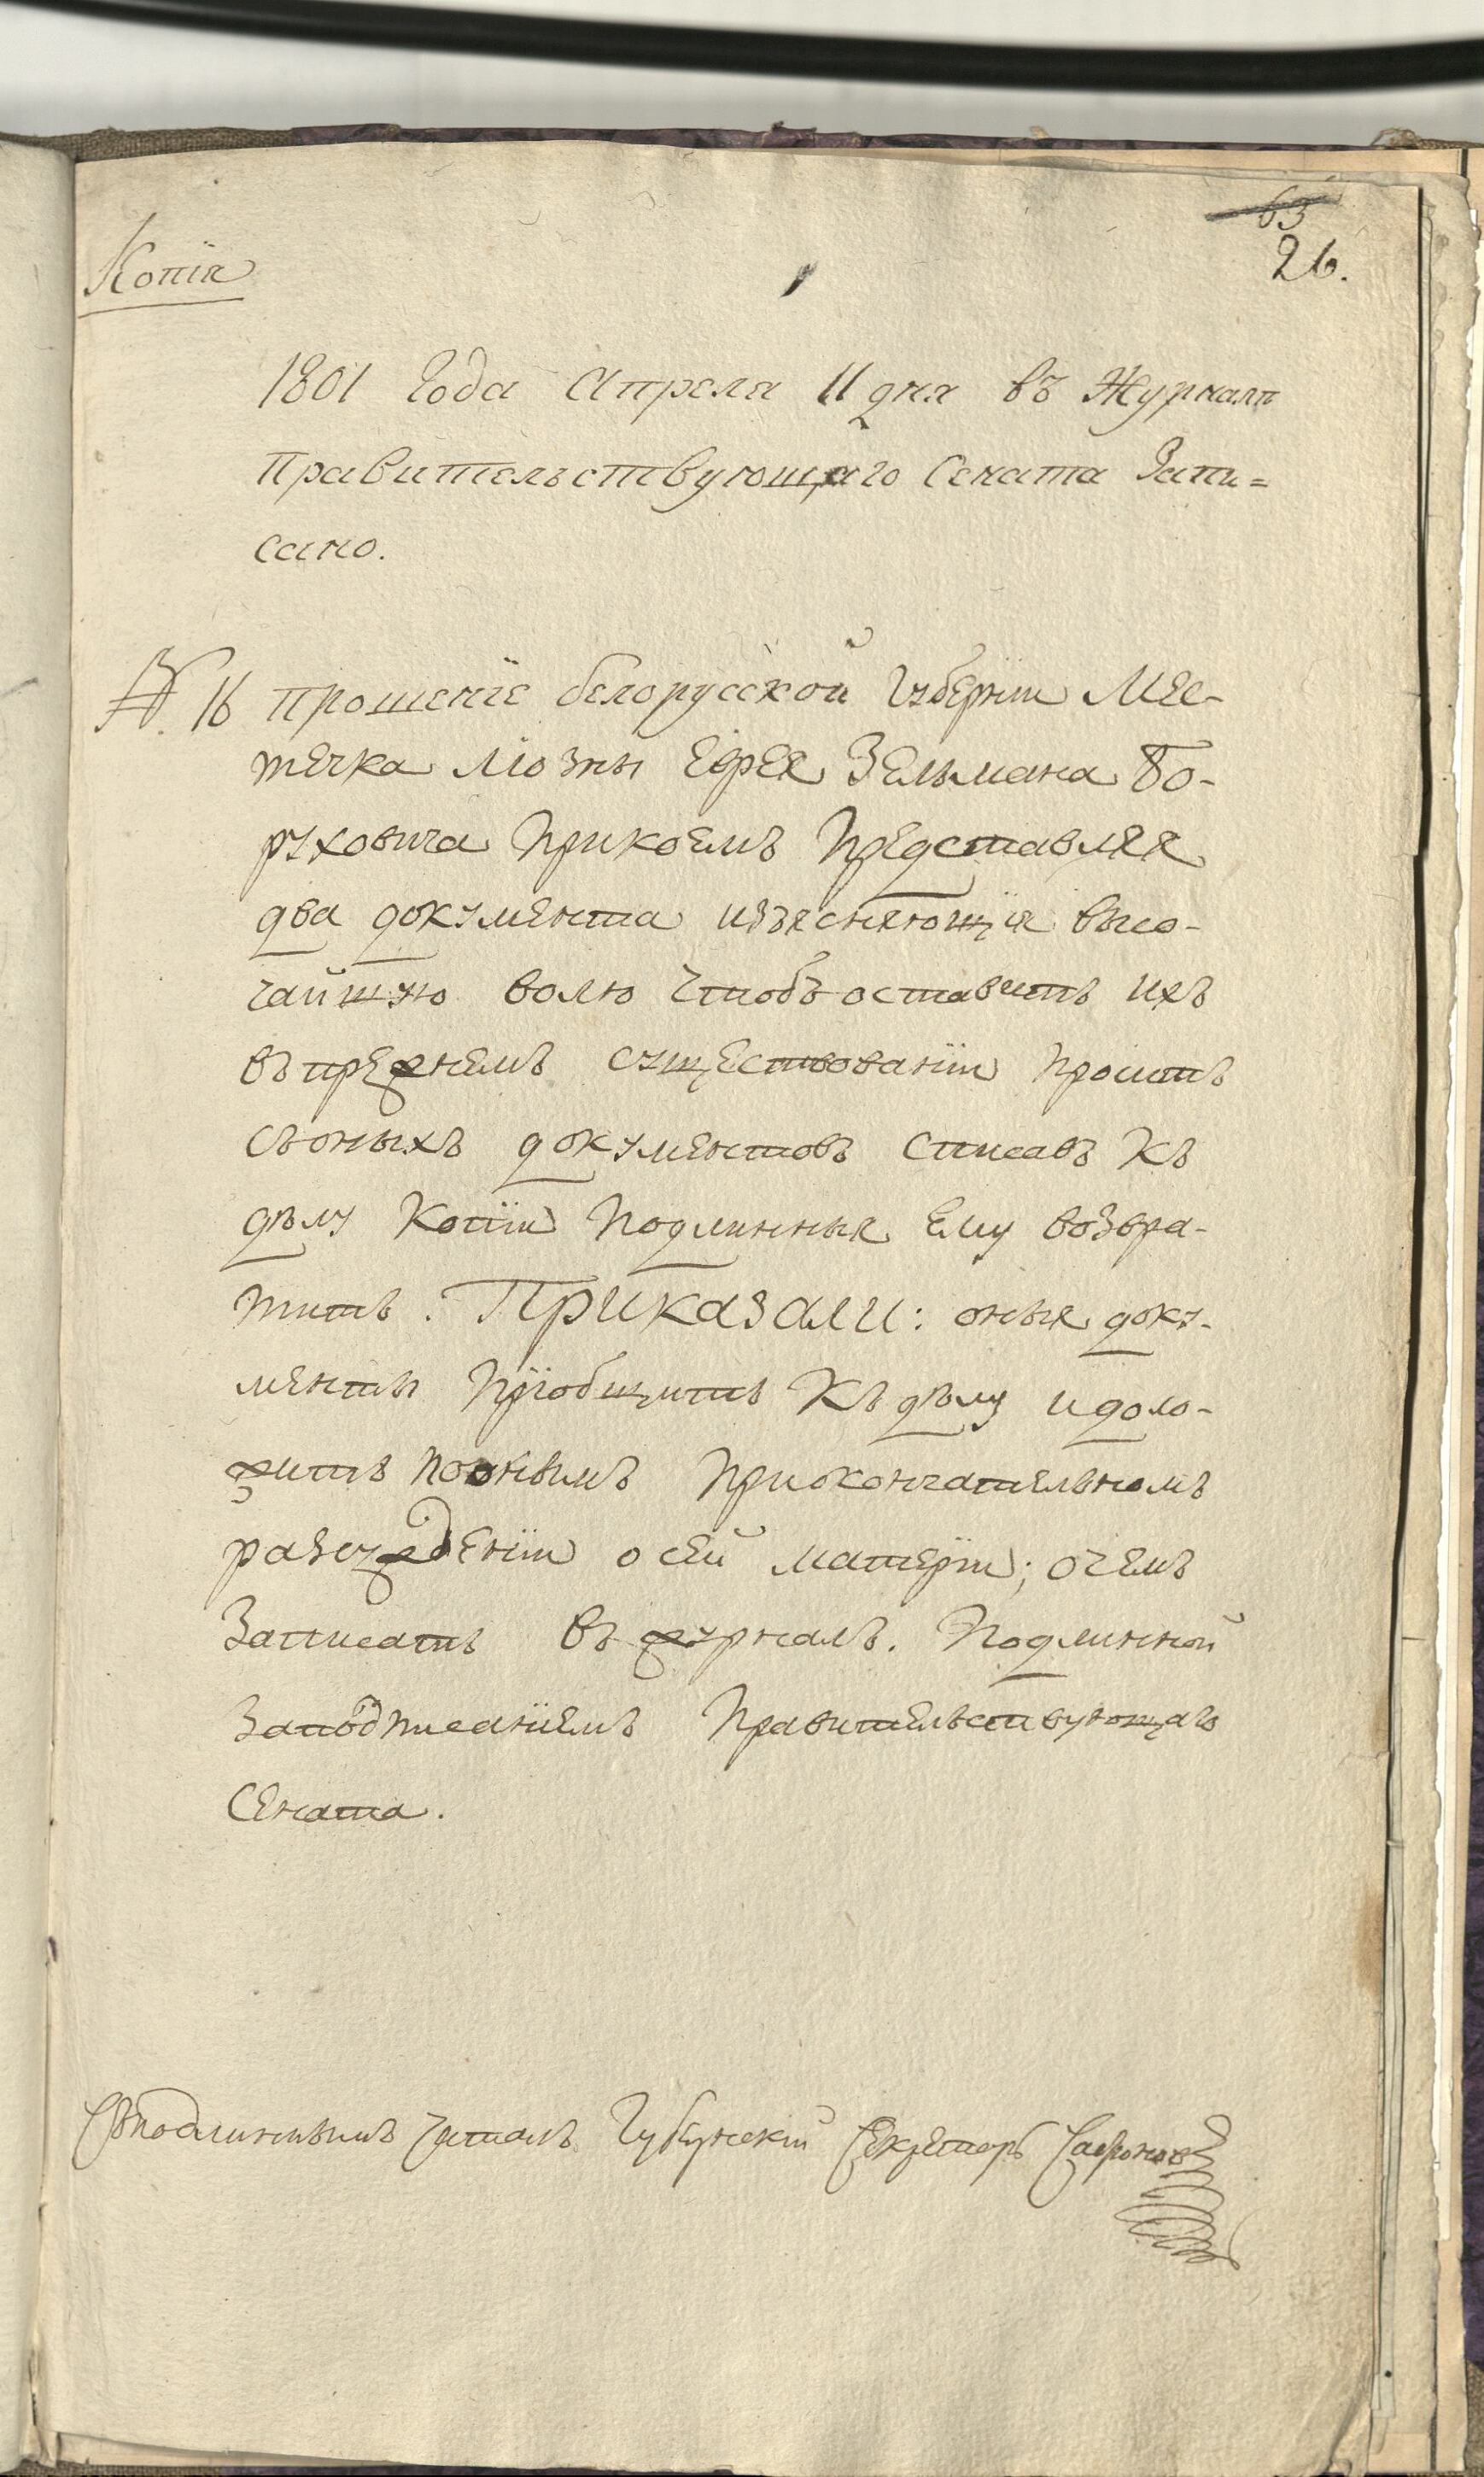 63
26.
Копія
1801 Года Апреля 11 дня въ Журналѣ
Правительствующаго Сената Запи=
сано.
№ 16 Прошеніе белорусской Губерніи Мес-
течка Лiозны Еврея Зельмана Бо-
руховича Прикоемъ Представляя
два документа изъясняющія высо-
чайшую волю Чтобъ оставить ихъ
въ прежнемъ существованіи Проситъ
съоныхъ документовъ Списавъ Къ
дѣлу Копіи Подлинныя Ему возвра-
тить. Приказали: оныя доку-
менты Пріобщить Къ дѣлу и доло-
жить Поонымъ Приокончательномъ
разсуждении о сей матеріи; очемъ
Записать въ журналъ. Подлинной
Заподписаніемъ Правительствующаго
Сената.
Съподлиннымъ Читалъ Губернскій Секретарь Сафоновъ